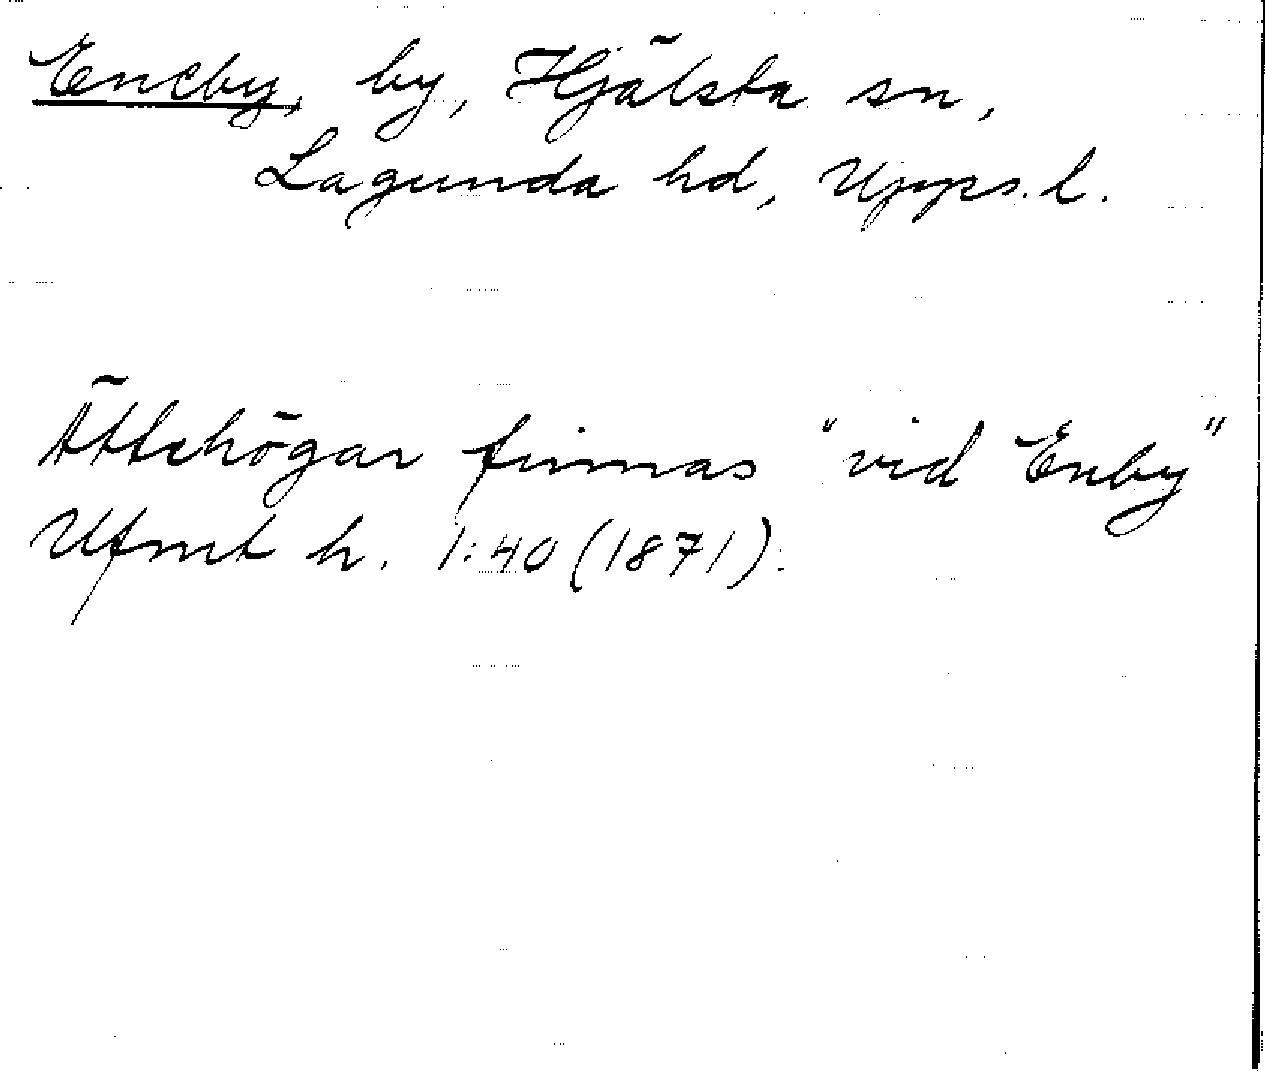 Eneby, by, Hjälsta sn,
Lagunda hd, Upps. l.
Ättehögar finnas "vid Enby"
Ufmt h. 1:40 (1871).